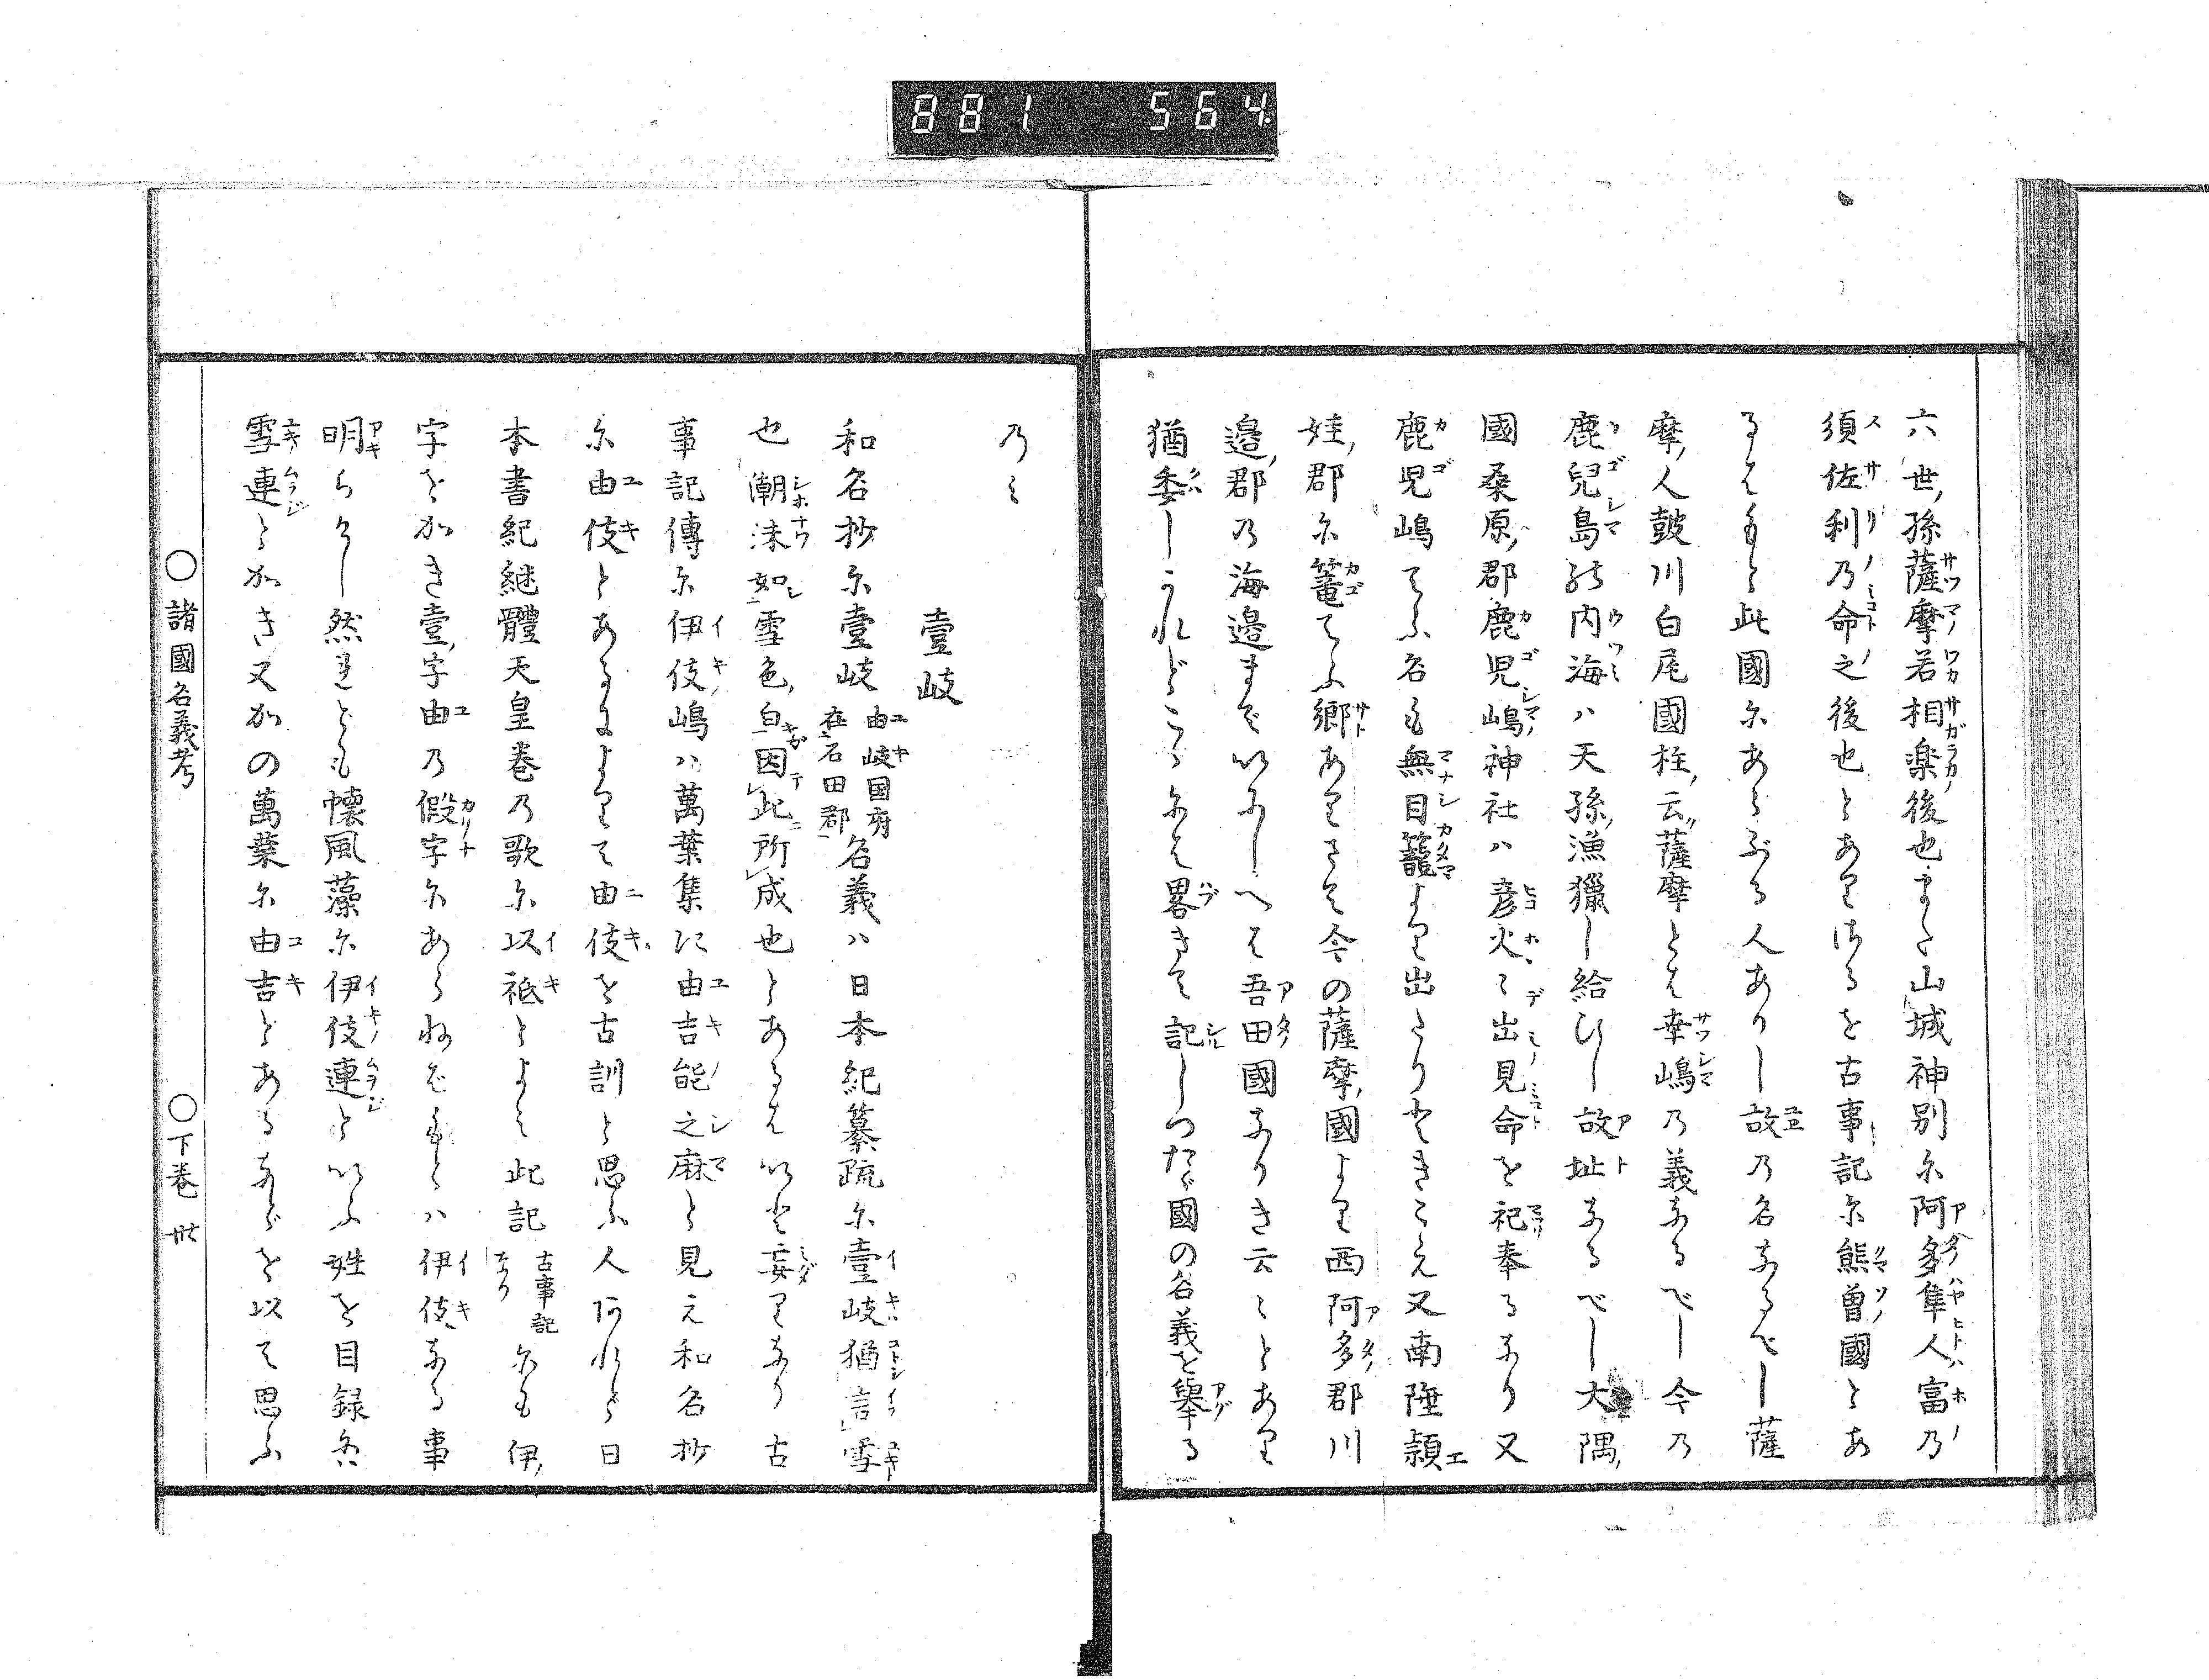 881 564
六世孫薩摩若相楽後也また山城神別尓阿多隼人富乃
須佐利乃命之後也とあり けるを古事記尓熊曽國とあ
るはもと此國尓あらぶる人ありし故乃名なるべし薩
摩人鼓川白尾國柱云薩摩とは幸嶋乃義なるべし今乃
鹿兒島能内海ハ天孫漁獵し給ひし故址なるべし大隅
國桑原郡鹿児嶋神社ハ彦火々出見命を祀奉るなり又
鹿児嶋てふ名も無目籠より出たりときこえ又南陲頴
娃郡尓篭てふ郷ありさて今の薩摩國より西阿多郡川
邉郡乃海邉まで以にしへは吾田國なりき云々とあり
猶委しかれどこゝには畧きて記しつたゞ國の名義を舉る
乃ミ
壹岐
和名抄尓壹岐 由岐国府在石田郡 名義ハ日本紀纂疏尓壹岐猶言雪
也潮沫如雪色白因此所成也とあるは以と妄りなり古
事記傳尓伊伎嶋ハ萬葉集に由吉能之麻と見え和名抄
尓由伎とあるによりて由伎を古訓と思ふ人阿れど日
本書紀継體天皇巻乃歌尓以祗とよミ此記 古事記なり 尓も伊
字をかき壹字由乃假字尓あらねばもとハ伊伎なる事
明らけし然れども懐風藻尓伊伎連と以ふ姓を目録尓
雪連とかき又かの萬葉尓由吉とあるなどを以て思ふ
○諸國名義考 ○下巻 卅六